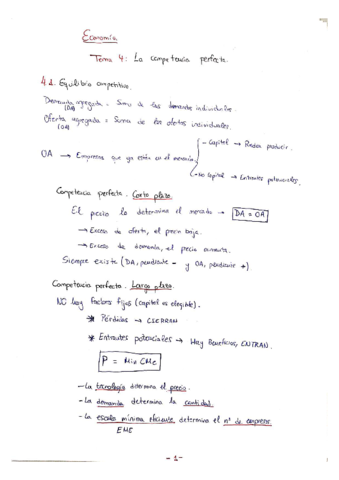 Economía
Tema 4: La competencia perfecta.
4.1. Equilibrio competitivo.
Demanda agregada = Suma de las demandas individuales.
(DA)
Oferta agregada = Suma de las ofertas individuales.
(OA)
- Capital → Pueden producir.
OA → Empresas que ya están en el mercado
- No capital → Entrantes potenciales.
Competencia perfecta. Corto plazo.
El precio lo determina el mercado → DA = OA
→ Exceso de oferta, el precio baja.
→ Exceso de demanda, el precio aumenta.
Siempre existe (DA, pendiente - y OA, pendiente +)
Competencia perfecta. Largo plazo.
NO hay factores fijos (capital es elegible).
* Pérdidas → CIERRAN
* Entrantes potenciales → Hay Beneficios, ENTRAN.
P = Min CMe
- La tecnología determina el precio.
- La demanda determina la cantidad.
- La escala mínima eficiente determina el nº de empresas
EME
- 1 -